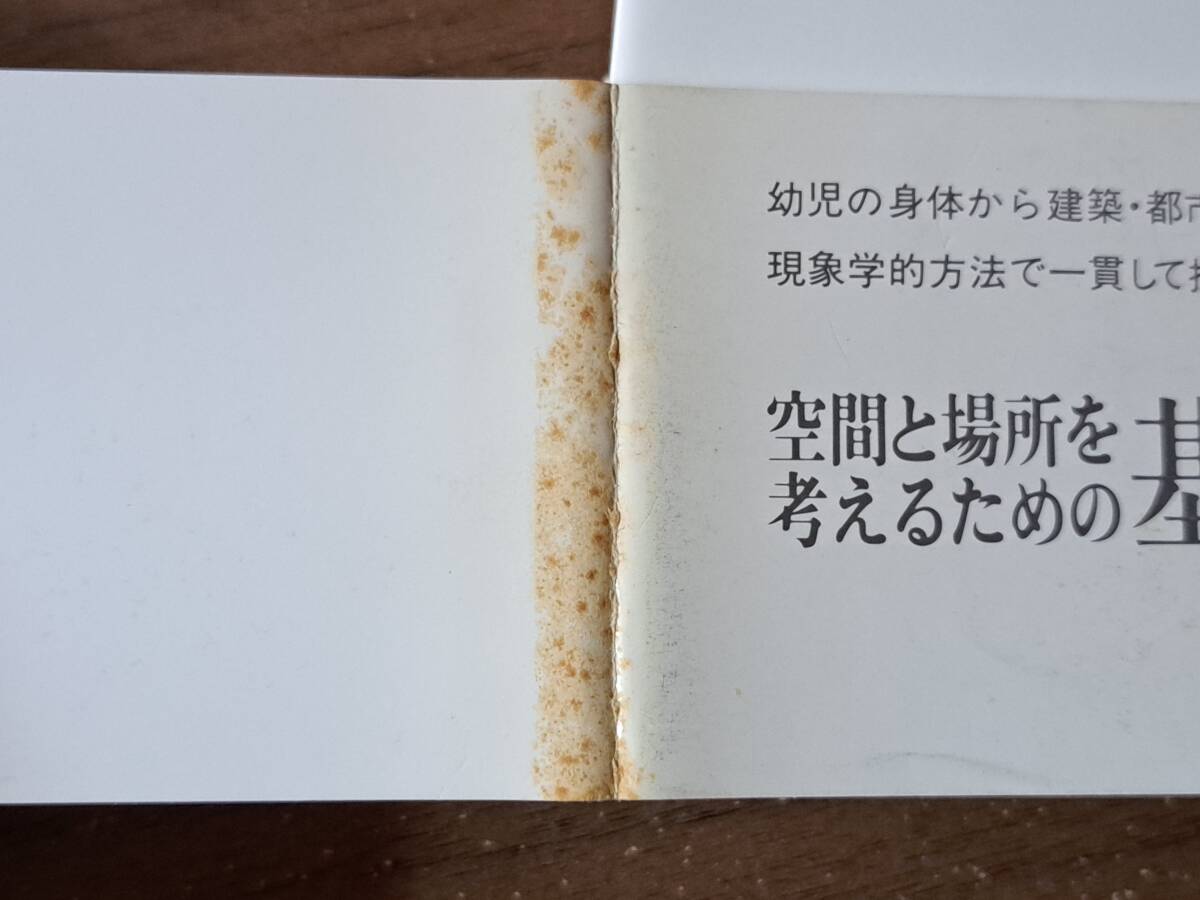 幼児の身体から建築・都市
現象学的方法で一貫して
空間と場所を
考えるための基